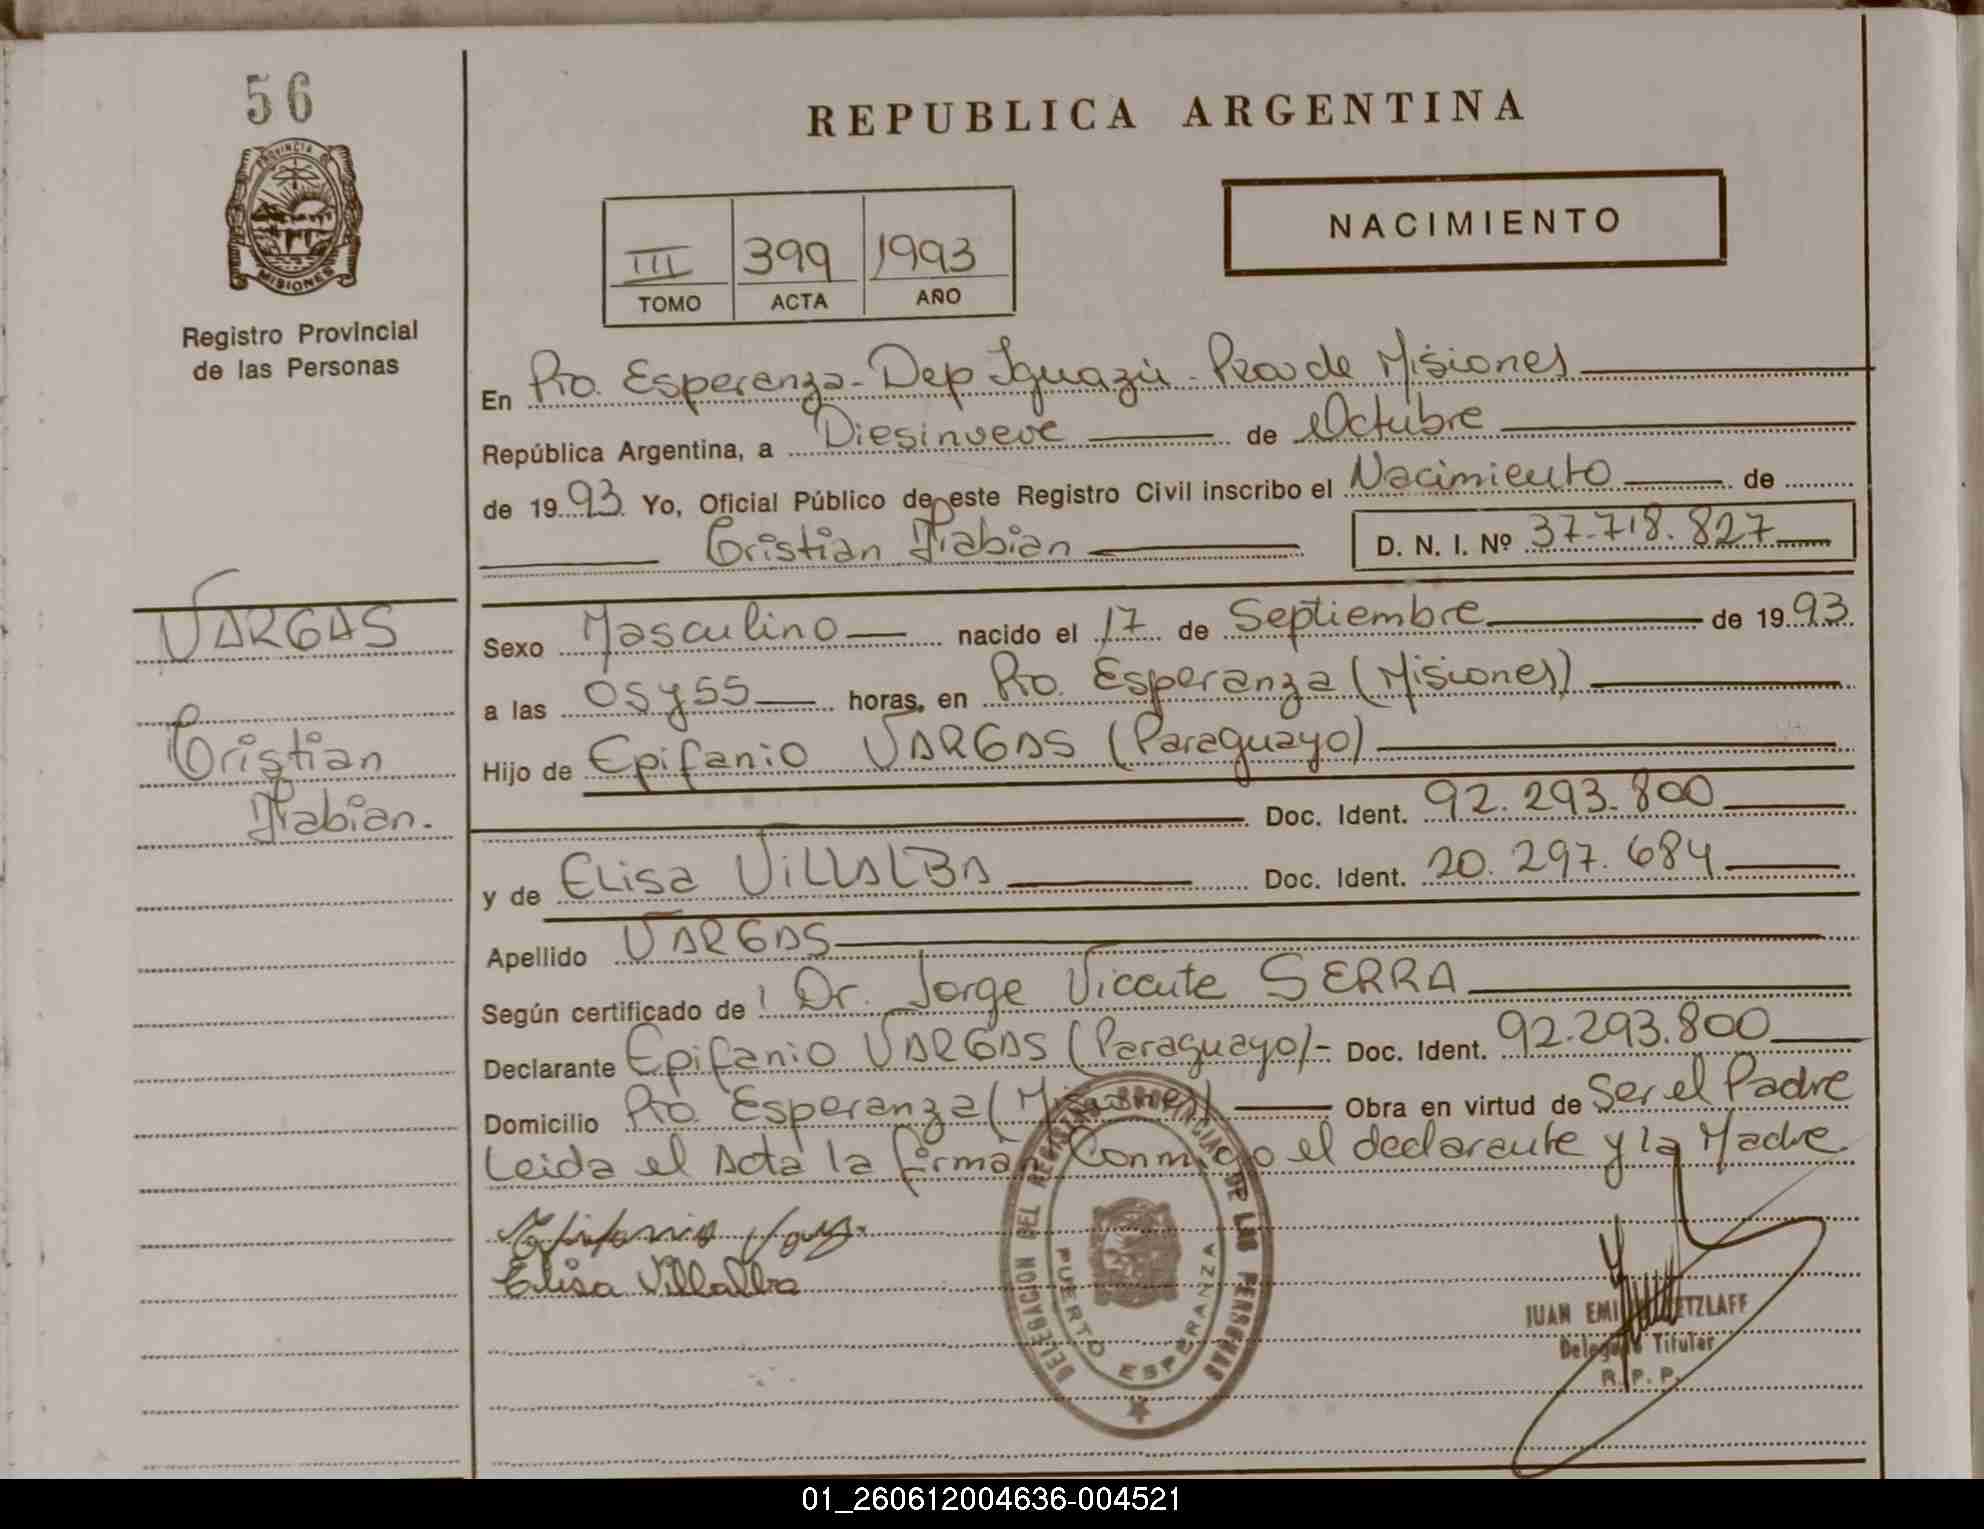 56
PROVINCIA DE
MISIONES
Registro Provincial
de las Personas
REPUBLICA ARGENTINA
NACIMIENTO
III 399 1993
TOMO ACTA AÑO
En Pto. Esperanza - Dep Iguazú - Prov de Misiones
República Argentina, a Diesinueve de Octubre
de 1993 Yo, Oficial Público de este Registro Civil inscribo el Nacimiento de
Cristian Fabian D. N. I. Nº 37.718.827
VARGAS
Cristian
Fabian.
Sexo Masculino nacido el 17 de Septiembre de 1993
a las 05 y 55 horas, en Pto. Esperanza (Misiones)
Hijo de Epifanio VARGAS (Paraguayo)
Doc. Ident. 92.293.800
y de Elisa VILLALBA Doc. Ident. 20.297.684
Apellido VARGAS
Según certificado de Dr. Jorge Vicente SERRA
Declarante Epifanio VARGAS (Paraguayo) - Doc. Ident. 92.293.800
Domicilio Pto. Esperanza (Misiones) Obra en virtud de Ser el Padre
Leida el Acta la firman Conmigo el declarante y la Madre
Elisa Villalba
DELEGACION DEL REGISTRO PROVINCIAL DE LAS PERSONAS
PUERTO ESPERANZA
JUAN EMI ETZLAFF
Delegado Titular
R. P. P.
01_260612004636-004521